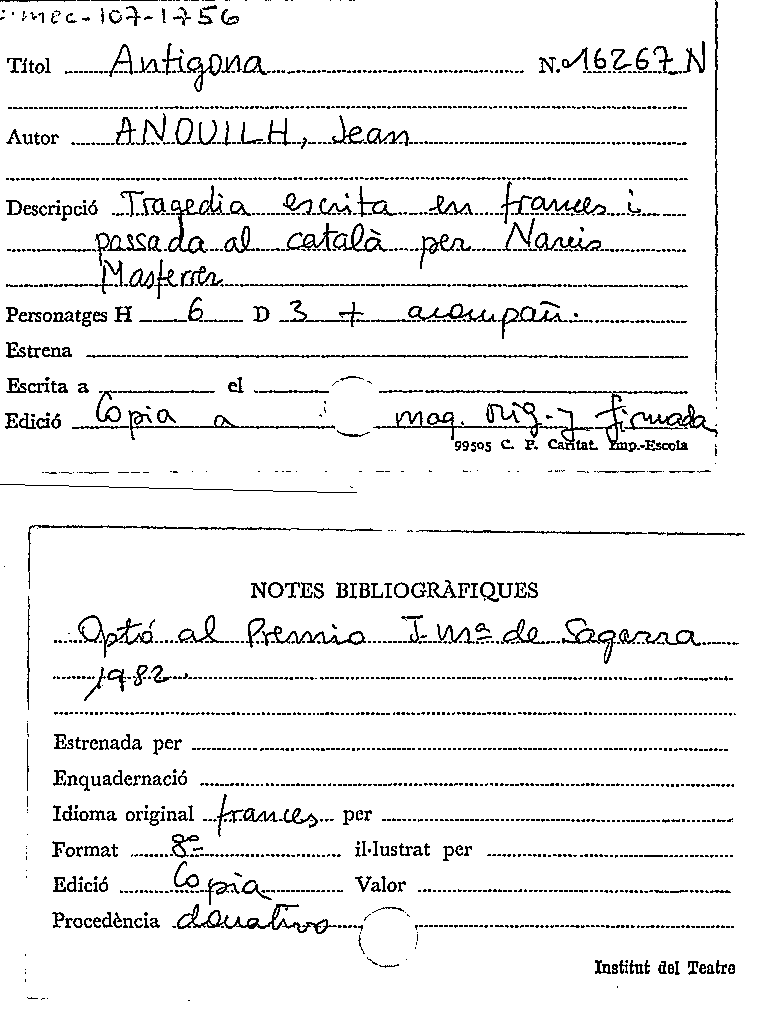 mec-107-1756
Títol Antigona N.º 16267 N
Autor ANOUILH, Jean
Descripció Tragedia escrita en frances i
passada al català per Narcis
Masferrer
Personatges H 6 D 3 + acompañ.
Estrena
Escrita a el
Edició Copia a maq. orig. y firmada
99505 C. P. Caritat. Imp.-Escola
NOTES BIBLIOGRÀFIQUES
Optó al Premio J. Mª de Sagarra
1982.
Estrenada per
Enquadernació
Idioma original frances per
Format 8º il·lustrat per
Edició Copia Valor
Procedència donativo
Institut del Teatre